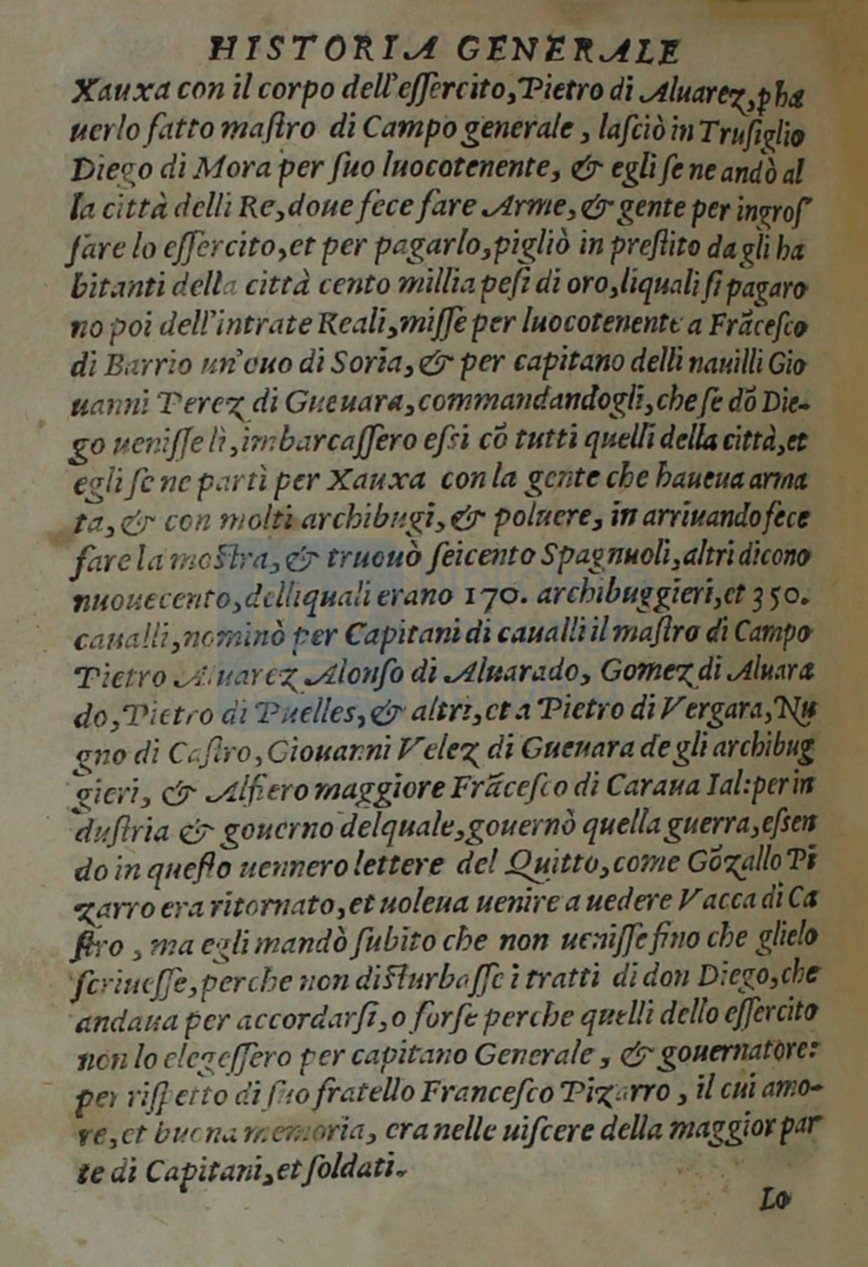 HISTORIA GENERALE
Xauxa con il corpo dell'eſſercito, Pietro di Aluarez, p ha
uerlo fatto maſtro di Campo generale, laſciò in Truſiglio
Diego di Mora per ſuo luocotenente, & egli ſe ne andò al
la città delli Re, doue fece fare Arme, & gente per ingroſ
ſare lo eſſercito, et per pagarlo, pigliò in preſtito da gli ha
bitanti della città cento millia peſi di oro, liquali ſi pagaro
no poi dell'intrate Reali, miſſe per luocotenente a Frãceſco
di Barrio nuouo di Soria, & per capitano delli nauilli Gio
uanni Perez di Gueuara, commandandogli, che ſe dõ Die-
go ueniſſe lì, imbarcaſſero eſsi cõ tutti quelli della città, et
egli ſe ne partì per Xauxa con la gente che haueua arma
ta, & con molti archibugi, & poluere, in arriuando fece
fare la moſtra, & truouò ſeicento Spagnuoli, altri dicono
nuouecento, delliquali erano 170. archibuggieri, et 350.
caualli, nominò per Capitani di caualli il maſtro di Campo
Pietro Aluarez Alonſo di Aluarado, Gomez di Aluara
do, Pietro di Puelles, & altri, et a Pietro di Vergara, Nu
gno di Caſtro, Giouanni Velez di Gueuara de gli archibug
gieri, & Alfiero maggiore Frãceſco di Caraua Ial: per in
duſtria & gouerno delquale, gouernò quella guerra, eſsen
do in queſto uennero lettere del Quitto, come Gõzallo Pi
zarro era ritornato, et uoleua uenire a uedere Vacca di Ca
ſtro, ma egli mandò ſubito che non ueniſſe fino che glielo
ſcriueſſe, perche non diſturbaſſe i tratti di don Diego, che
andaua per accordarſi, o forſe perche quelli dello eſſercito
non lo elegeſſero per capitano Generale, & gouernatore:
per riſpetto di ſuo fratello Franceſco Pizarro, il cui amo-
re, et buona memoria, era nelle uiſcere della maggior par
te di Capitani, et ſoldati.
Lo